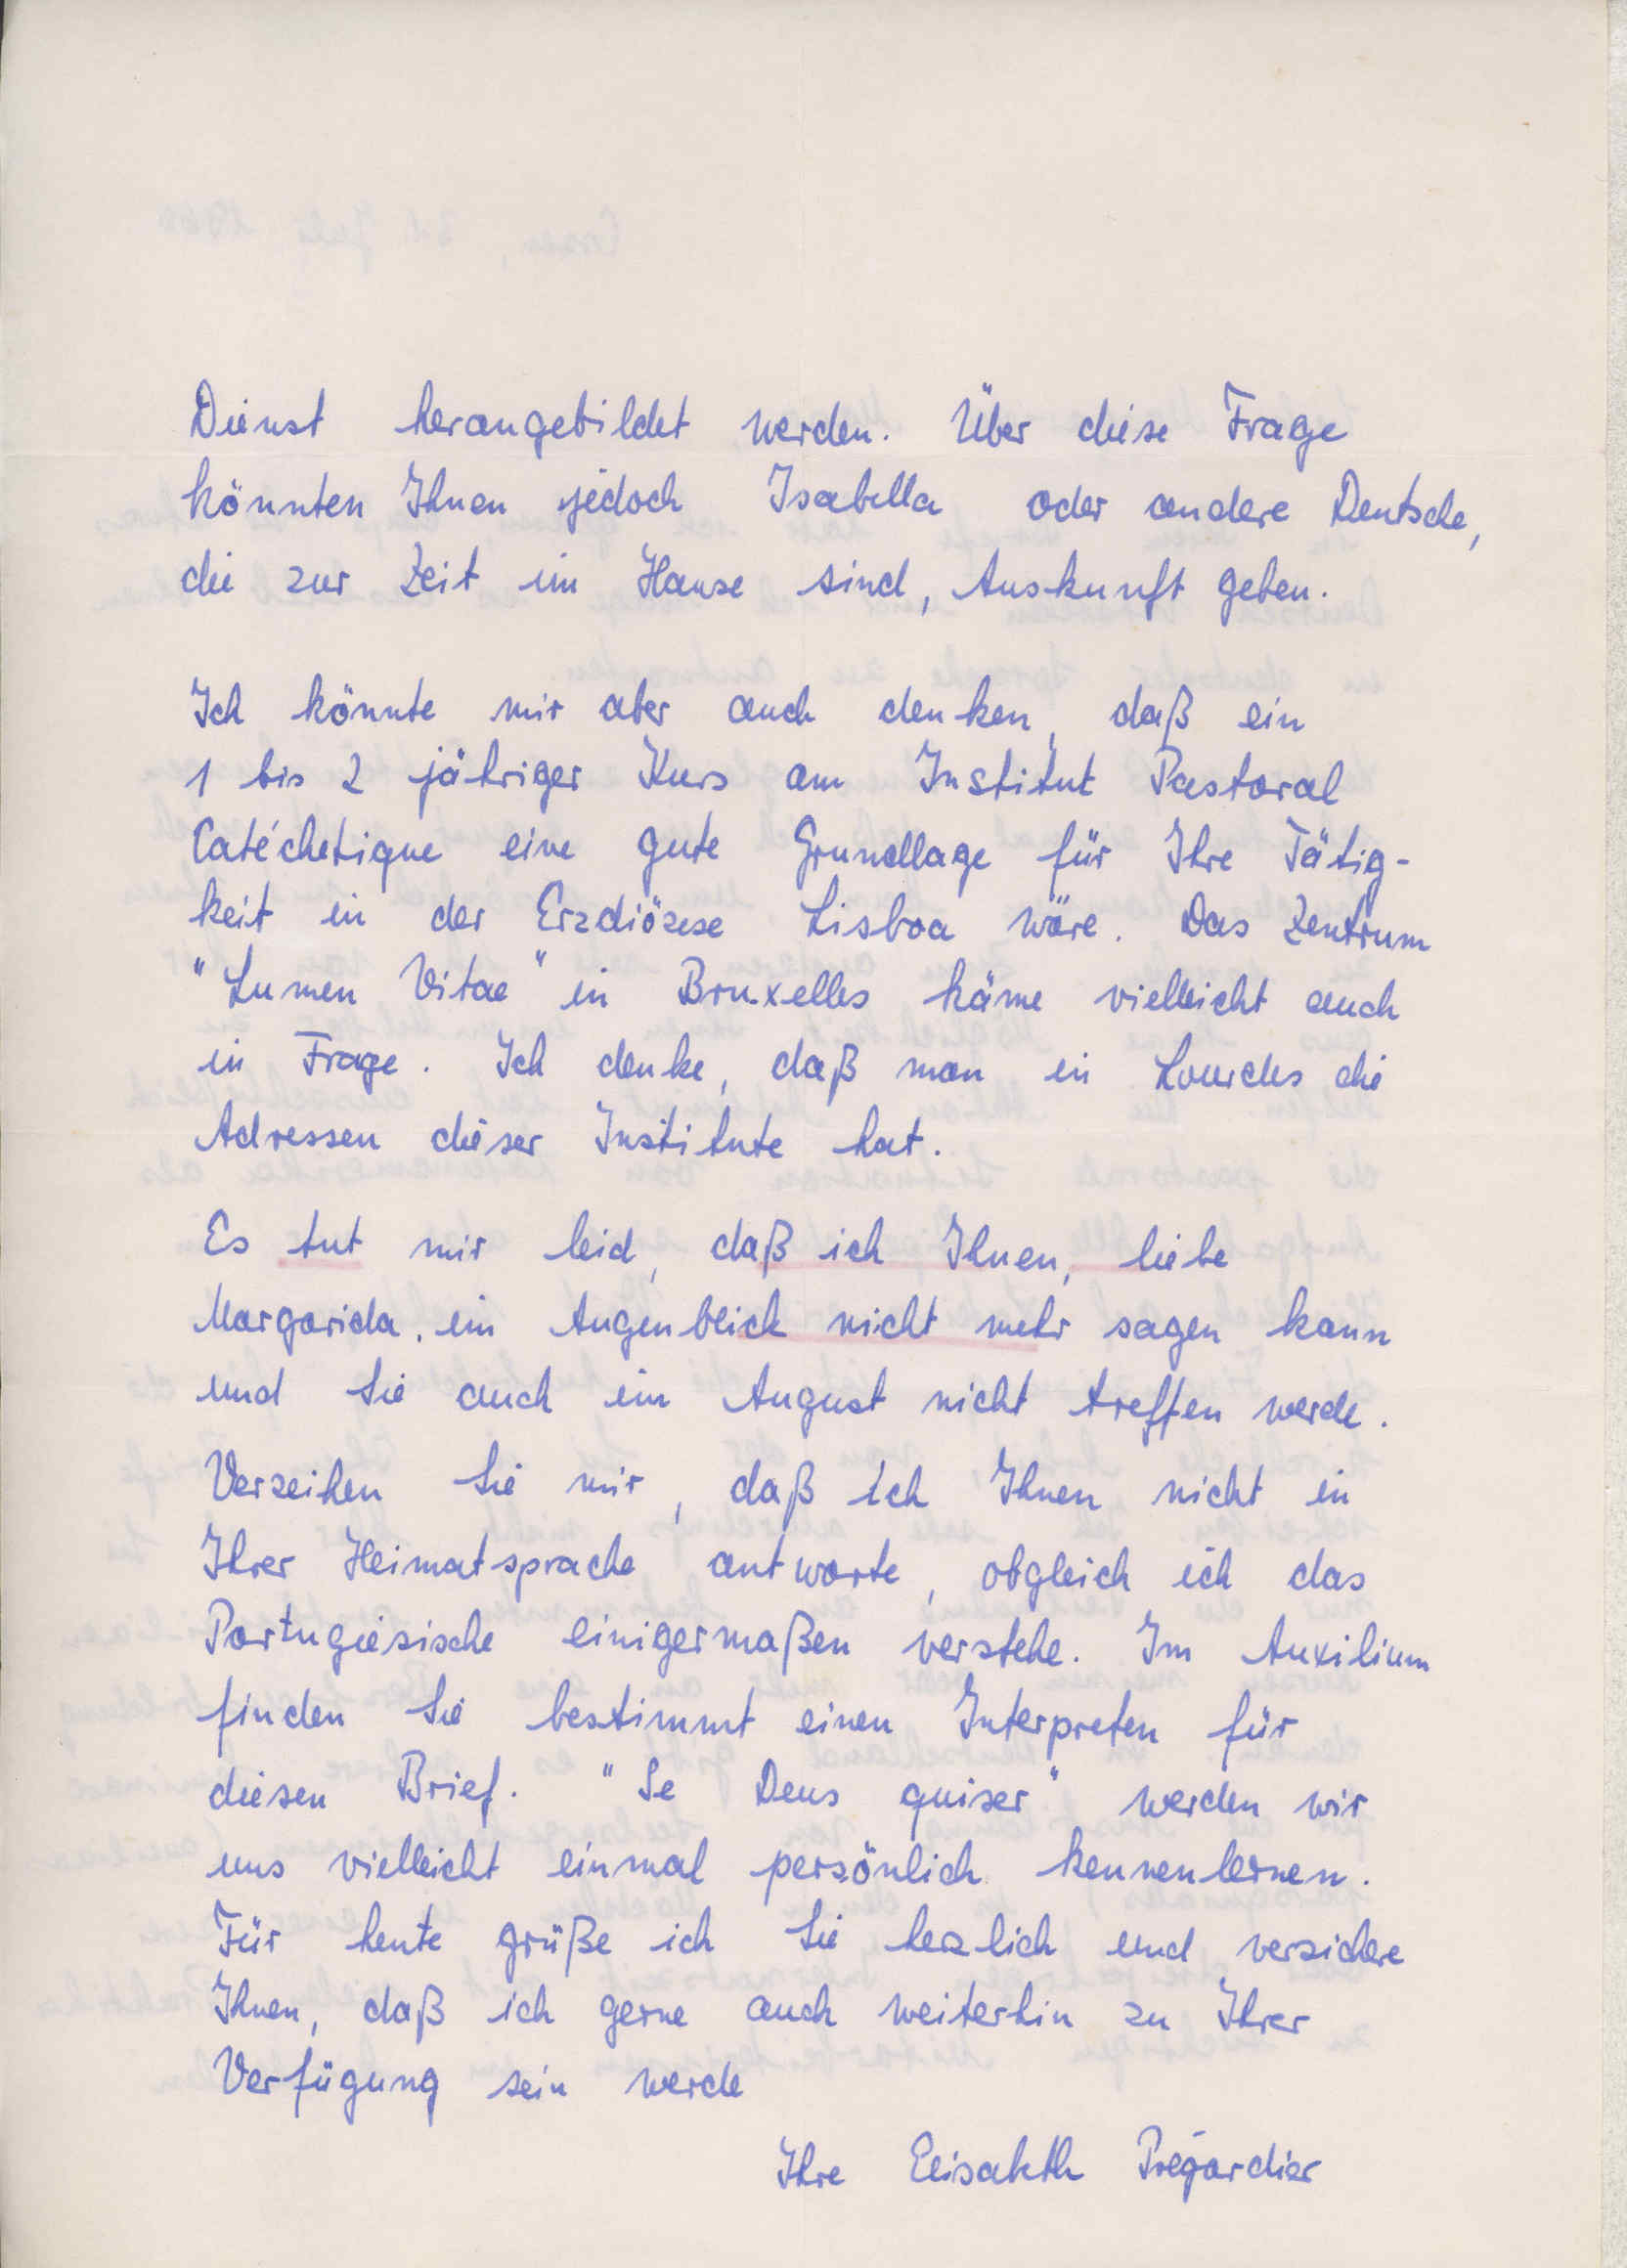 Dienst herangebildet werden. Über diese Frage
könnten Ihnen jedoch Isabella oder andere Deutsche,
die zur Zeit im Hause sind, Auskunft geben.
Ich könnte mir aber auch denken, daß ein
1 bis 2 jähriger Kurs am Institut Pastoral
Catéchetique eine gute Grundlage für Ihre Tätig-
keit in der Erzdiözese Lisboa wäre. Das Zentrum
"Lumen Vitae" in Bruxelles käme vielleicht auch
in Frage. Ich denke, daß man in Lourdes die
Adressen dieser Institute hat.
Es tut mir leid, daß ich Ihnen, liebe
Margarida, im Augenblick nicht mehr sagen kann
und Sie auch im August nicht treffen werde.
Verzeihen Sie mir, daß ich Ihnen nicht in
Ihrer Heimatsprache antworte, obgleich ich das
Portugiesische einigermaßen verstehe. Im Auxilium
finden Sie bestimmt einen Interpreten für
diesen Brief. "Se Deus quiser" werden wir
uns vielleicht einmal persönlich kennenlernen.
Für heute grüße ich Sie herzlich und versichere
Ihnen, daß ich gerne auch weiterhin zu Ihrer
Verfügung sein werde
Ihre Elisabeth Prégardier